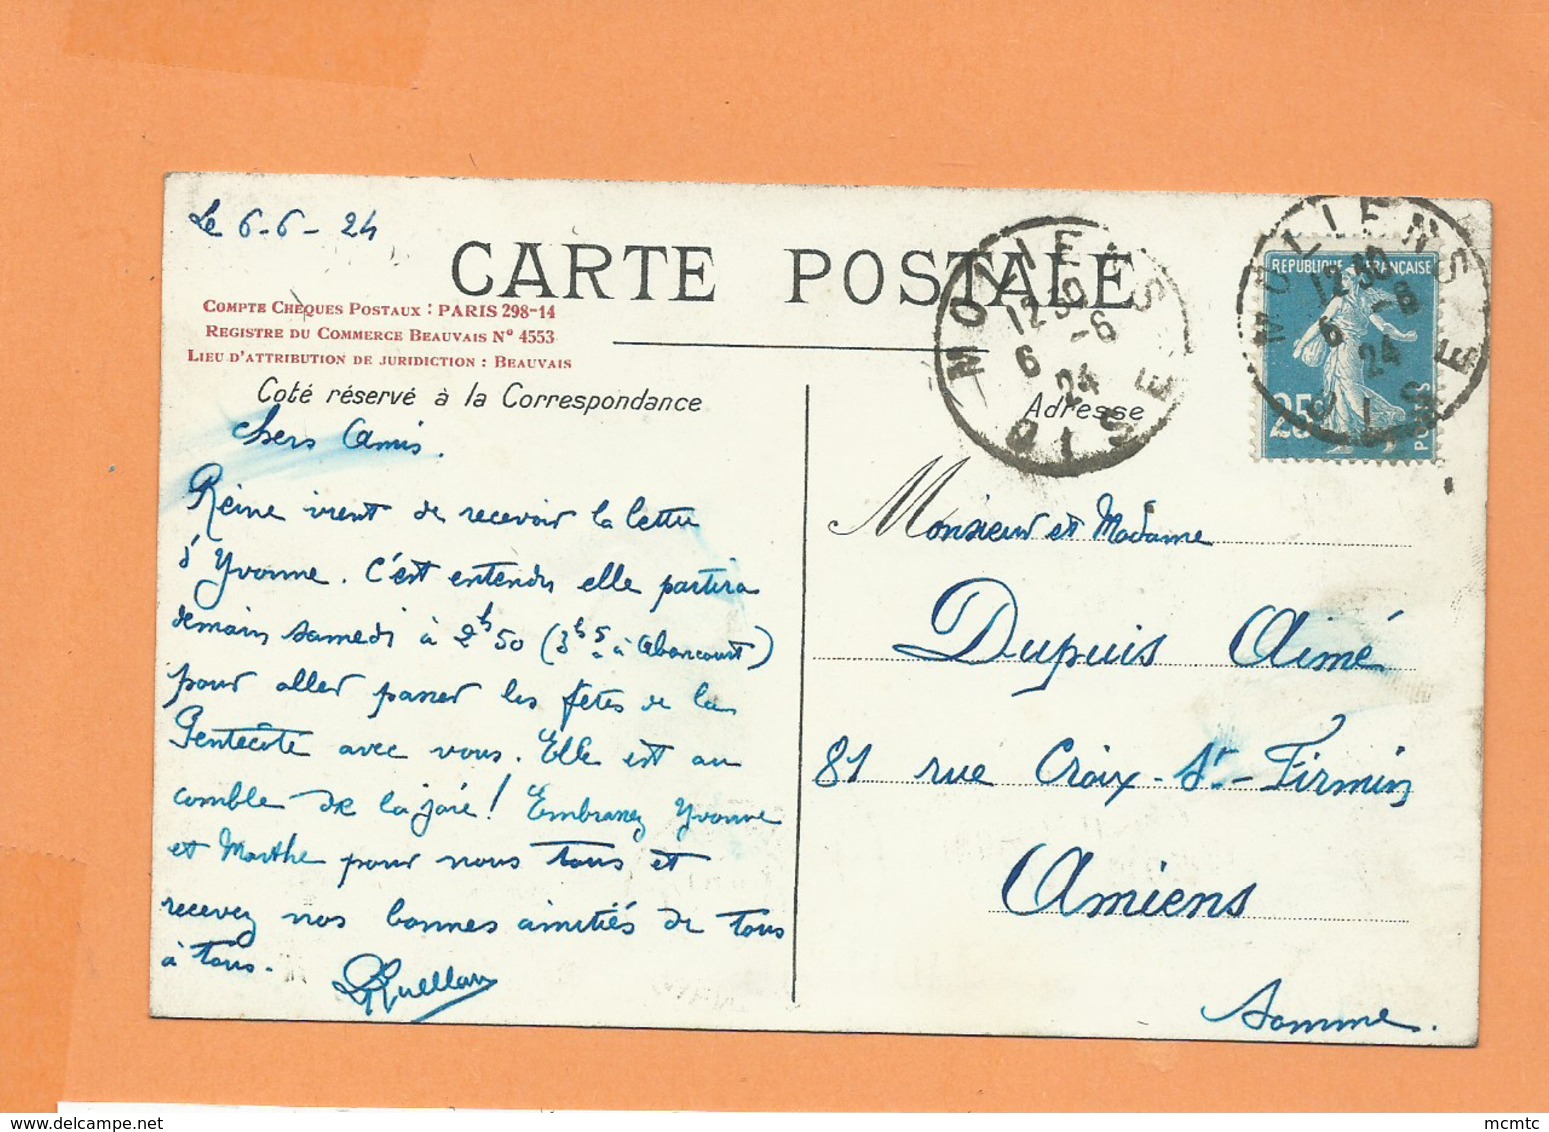 Le 6-6-24
CARTE POSTALE
COMPTE CHÈQUES POSTAUX : PARIS 298-14
REGISTRE DU COMMERCE BEAUVAIS N° 4553
LIEU D'ATTRIBUTION DE JURIDICTION : BEAUVAIS
Coté réservé à la Correspondance
Chers Amis.
Reine vient de recevoir la lettre
d'Yvonne. C'est entendu elle partira
demain samedi à 2h50 (3h5 à Abancourt)
pour aller passer les fêtes de la
Pentecôte avec vous. Elle est au
comble de la joie! Embrassez Yvonne
et Marthe pour nous tous et
recevez nos bonnes amitiés de tous
à tous.
MOLIENS
12 30
6 -6
24
OISE
Adresse
MOLIENS
12 30
6 -6
24
OISE
REPUBLIQUE FRANÇAISE
25
POSTES
Monsieur et Madame
Dupuis Aimé
81 rue Croix-St-Firmin
Amiens
Somme.
mcmtc